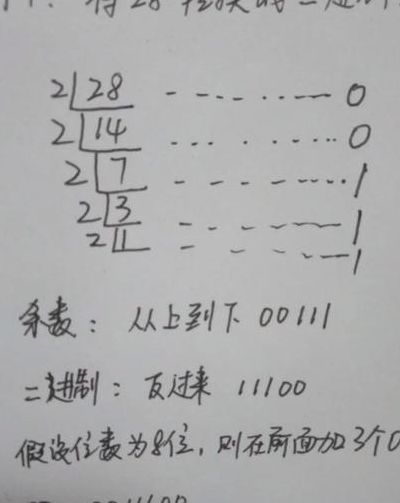 将28转换
2 28 ---------- 0
2 14 .......... 0
2 7 ---------- 1
2 3 ---------- 1
2 1 ---------- 1
余数：从上到下 00111
二进制：反过来 11100
假设位数为8位，则在前面加3个0